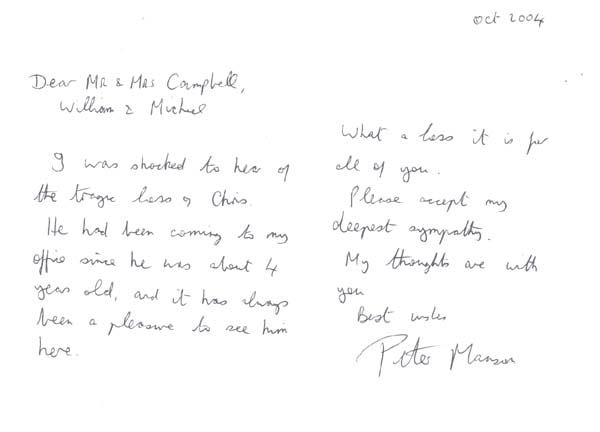 Oct 2004
Dear Mr & Mrs Campbell,
William & Michael
I was shocked to hear of
the tragic loss of Chris.
He had been coming to my
office since he was about 4
years old, and it has always
been a pleasure to see him
here.
What a loss it is for
all of you.
Please accept my
deepest sympathy.
My thoughts are with
you
Best wishes
Peter Manson